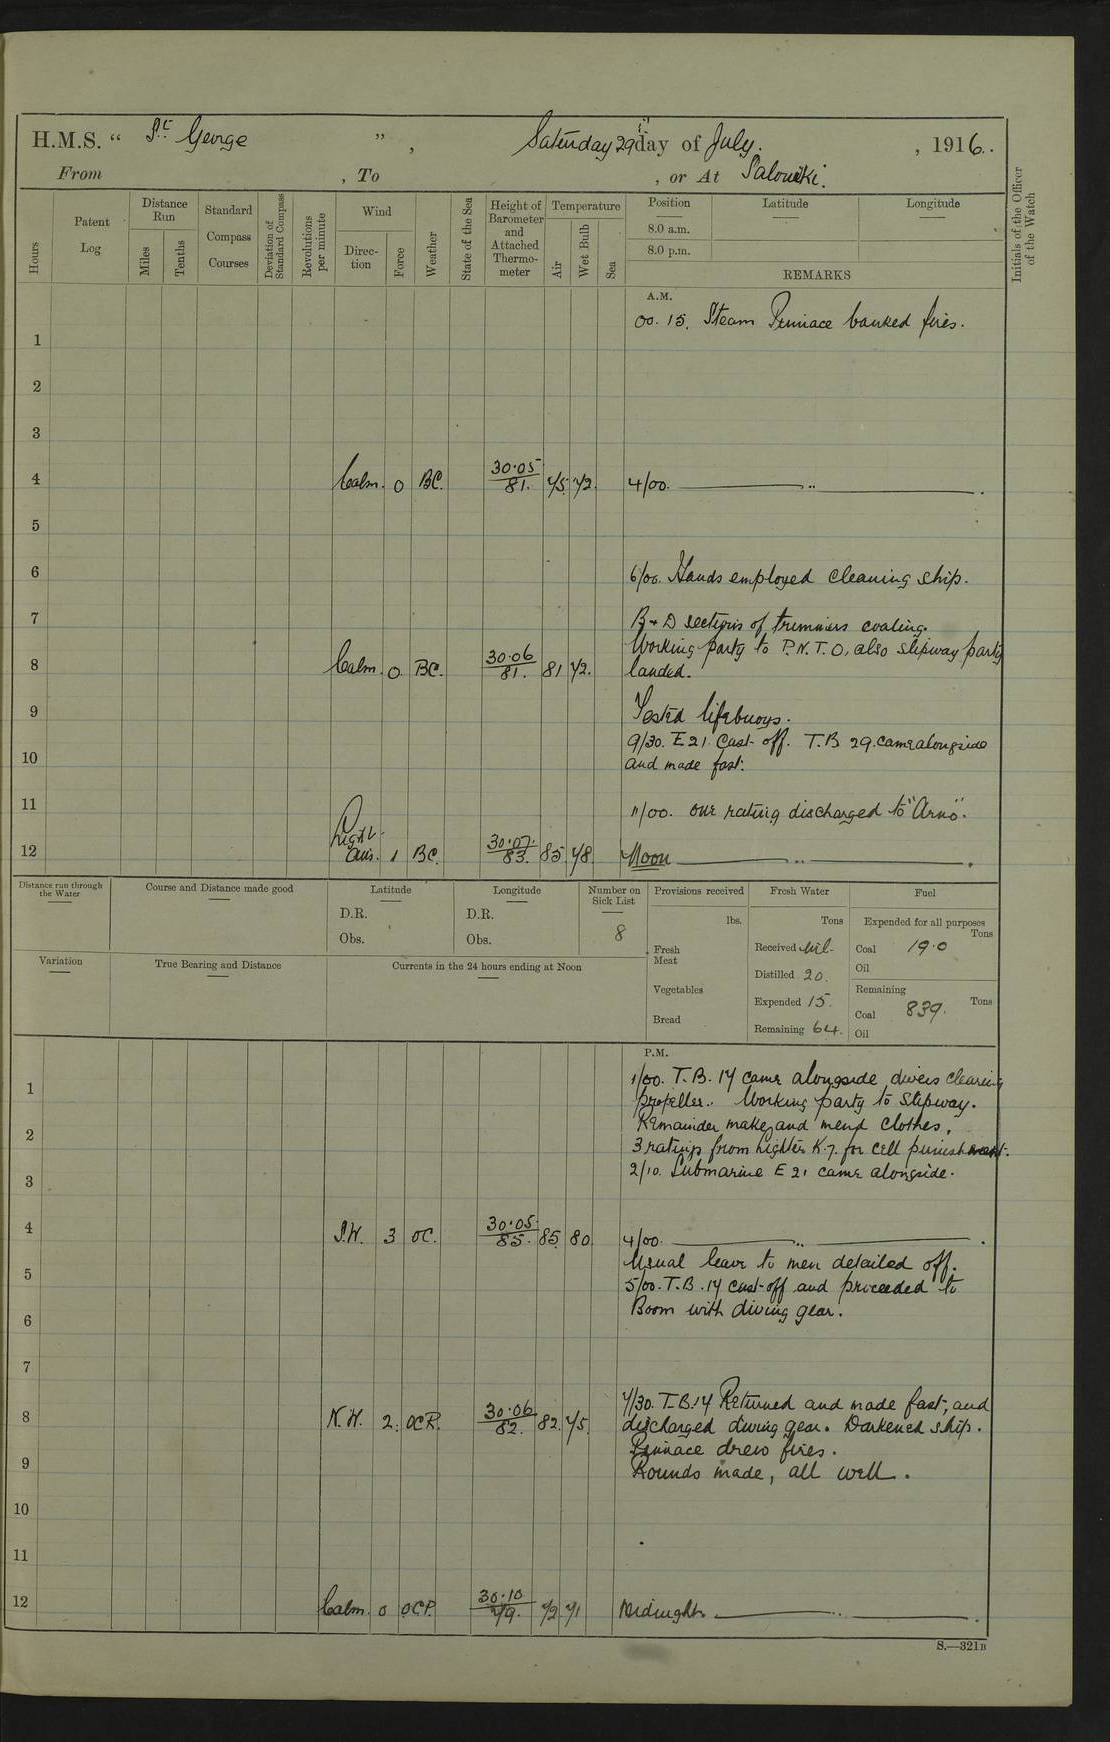 H.M.S. “ St George ” , Saturday 29th day of July. , 1916.
From , To , or At Salonika.
Hours
Patent Log
Distance Run
Miles
Tenths
Standard Compass Courses
Deviation of Standard Compass
Revolutions per minute
Wind
Direction
Force
Weather
State of the Sea
Height of Barometer and Attached Thermometer
Temperature
Air
Wet Bulb
Sea
Position
Latitude
Longitude
8.0 a.m.
8.0 p.m.
REMARKS
Initials of the Officer of the Watch
A.M.
00.15. Steam Pinnace banked fires.
1
2
3
4 Calm. 0 BC. 30.05 / 81. 75. 72. 4/00. ——— .. ——— .
5
6 6/00. Hands employed cleaning ship.
7 B + D sections of trimmers coaling.
Working party to P.N.T.O, also slipway party
8 Calm. 0. BC. 30.06 / 81. 81 72. landed.
9 Tested lifebuoys.
9/30. E21 Cast off. T.B 29. came alongside
10 and made fast.
11 11/00. one rating discharged to "Arno".
12 Light airs. 1 BC. 30.07. / 83. 85. 78. Noon ——— .. ——— .
Distance run through the Water
Course and Distance made good
Latitude
D.R.
Obs.
Longitude
D.R.
Obs.
Number on Sick List
8
Provisions received
lbs.
Fresh Meat
Vegetables
Bread
Fresh Water
Tons
Received nil.
Distilled 20.
Expended 15.
Remaining 64.
Fuel
Expended for all purposes
Tons
Coal 19.0
Oil
Remaining
Tons
Coal 839.
Oil
Variation
True Bearing and Distance
Currents in the 24 hours ending at Noon
P.M.
1/00. T.B. 17 came alongside, divers clearing
1
propeller. Working party to Slipway.
Remainder make and mend clothes.
2
3 ratings from lighter K.7. for cell punishment.
2/10. Submarine E21 came alongside.
3
4 S.W. 3 OC. 30.05. / 85. 85. 80. 4/00. ——— .. ——— .
Usual leave to men detailed off.
5 5/00. T.B. 17 cast-off and proceeded to
Boom with diving gear.
6
7
7/30. T.B.17 Returned and made fast, and
8 N.W. 2. OCR. 30.06 / 82. 82. 75. discharged diving gear. Darkened ship.
Pinnace drew fires.
9 Rounds made, all well.
10
11
12 Calm. 0 OCP. 30.10 / 79. 72 71 Midnight. ——— .. ——— .
S.—321B